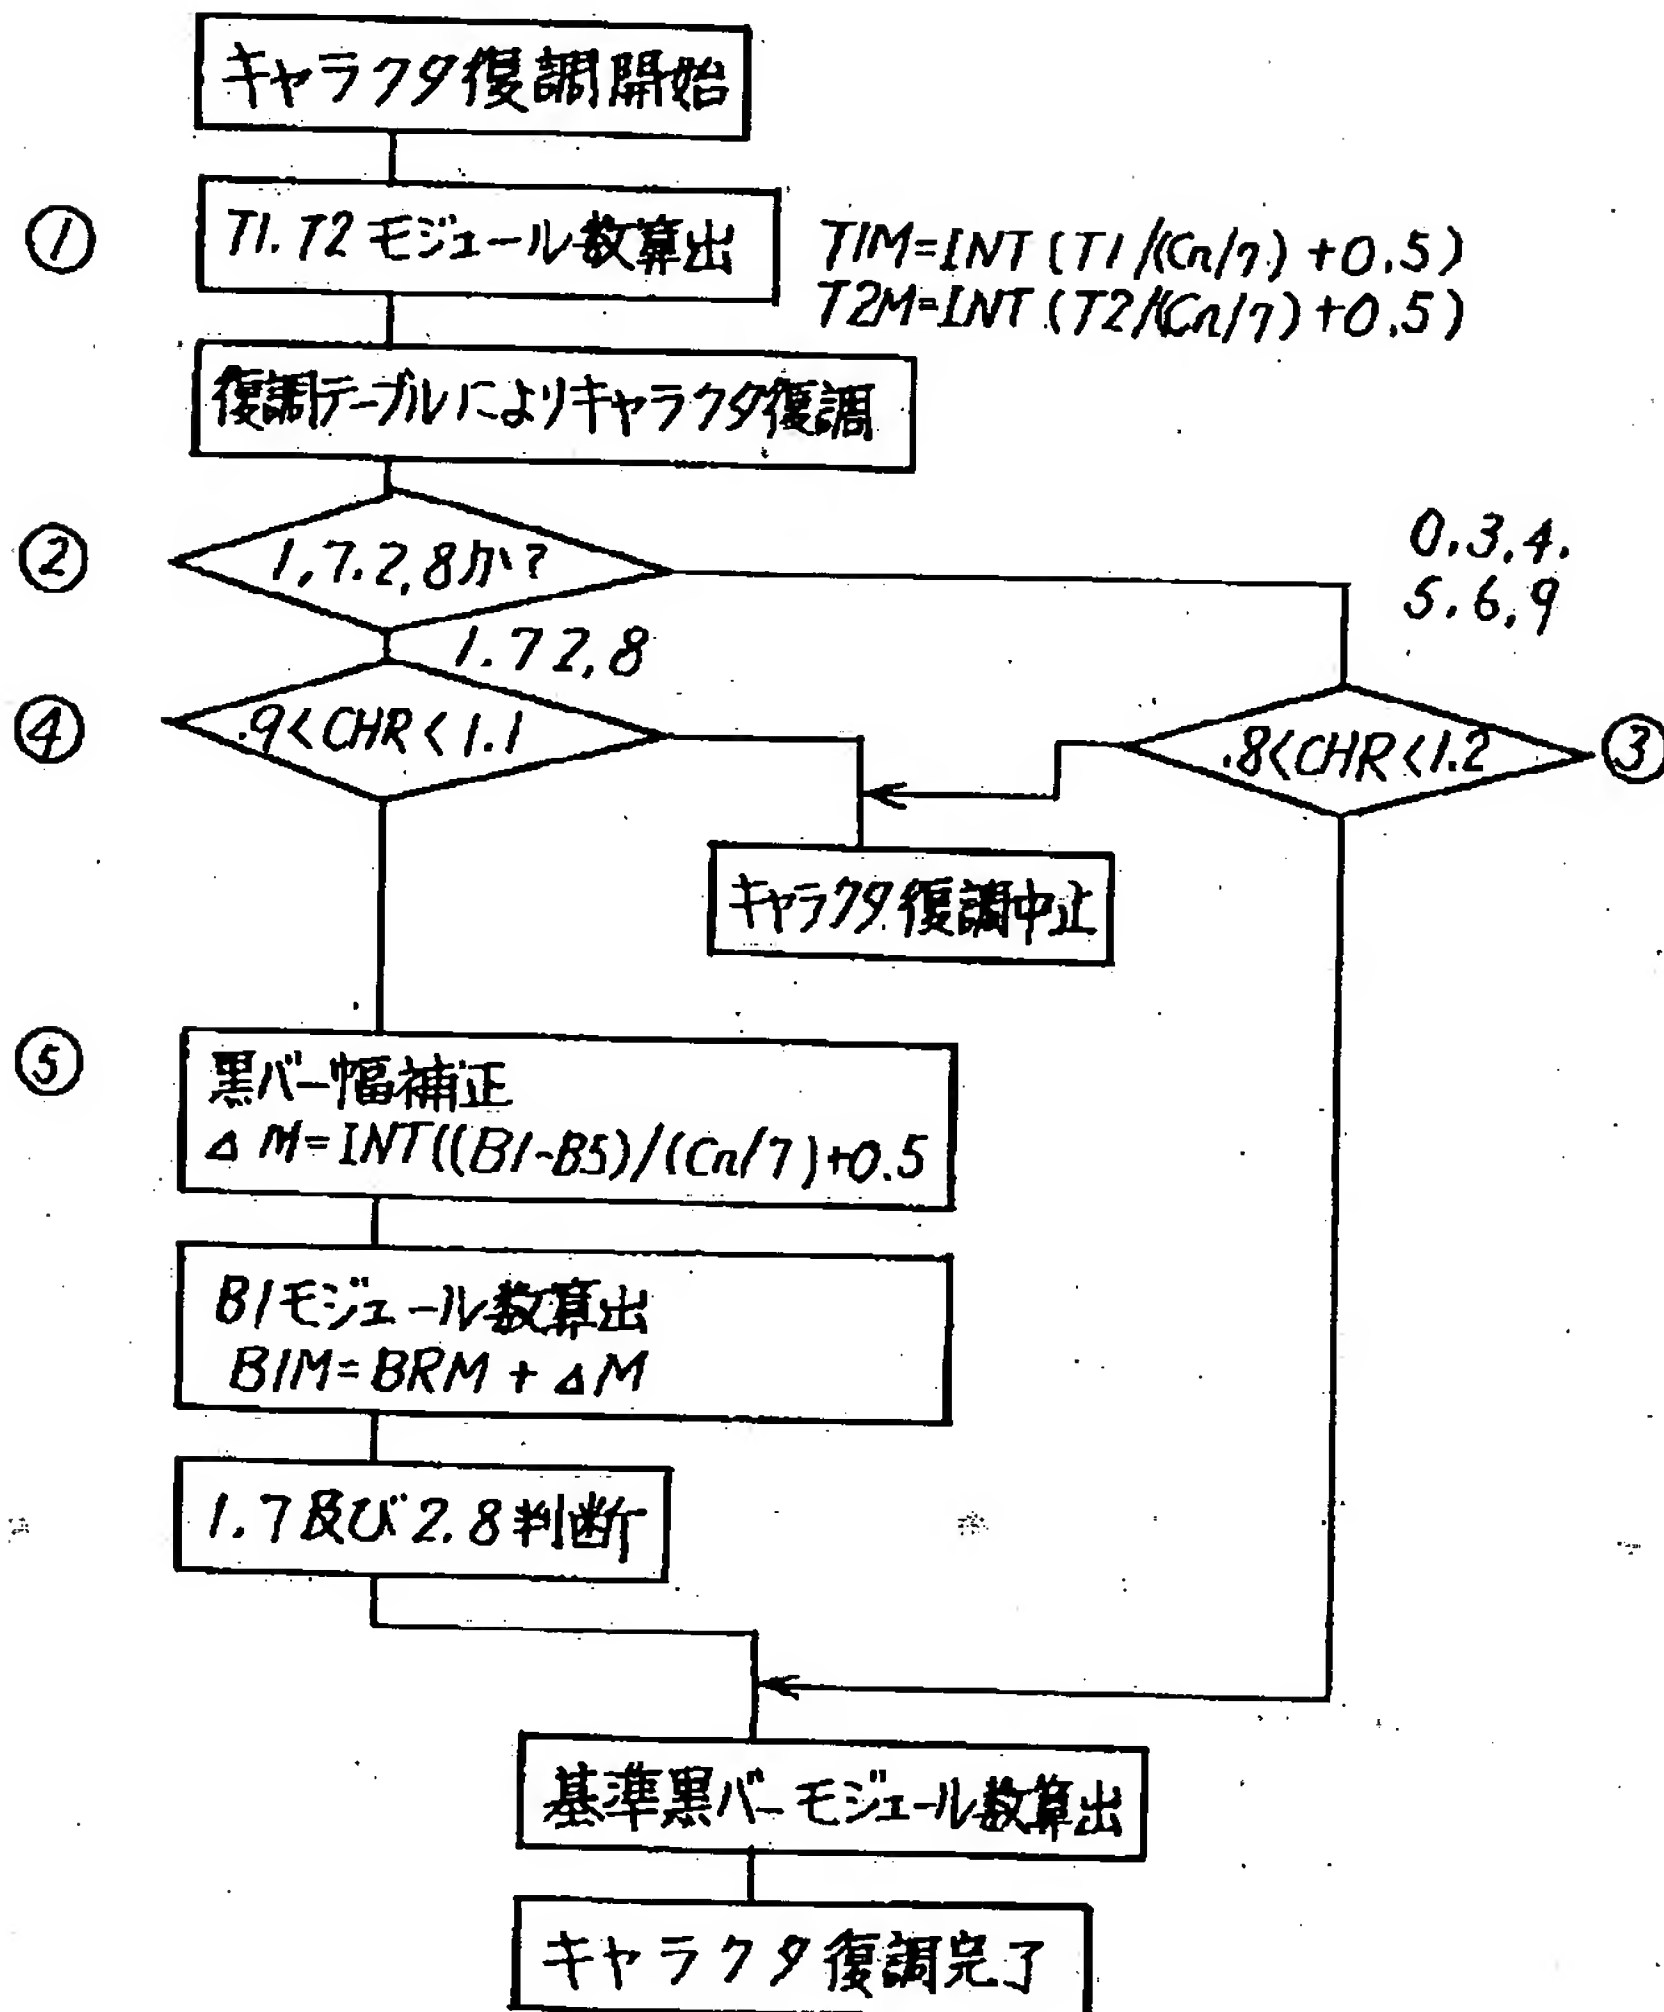 キャラクタ復調開始
①
T1.T2モジュール数算出
T1M=INT(T1/(Cn/7)+0.5)
T2M=INT(T2/(Cn/7)+0.5)
復調テーブルによりキャラクタ復調
②
1,7.2,8か?
0.3.4.
5.6.9
1.72,8
④
.9<CHR<1.1
.8<CHR<1.2
③
キャラクタ復調中止
⑤
黒バー幅補正
ΔM=INT((B1-B5)/(Cn/7)+0.5
B1モジュール数算出
B1M=BRM+ΔM
1.7及び2.8判断
基準黒バーモジュール数算出
キャラクタ復調完了